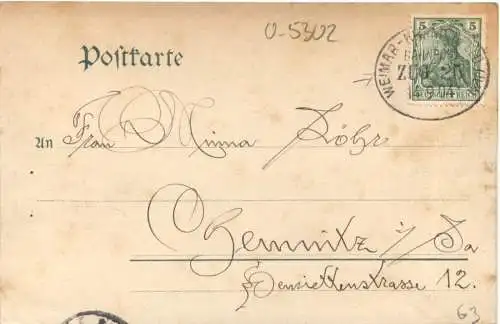 O-5302
5
Postkarte
WEIMAR-
BAHNPOST
ZUG 21
An Frau Minna Röhr
Chemnitz i/Sa
Henriettenstrasse 12.
63